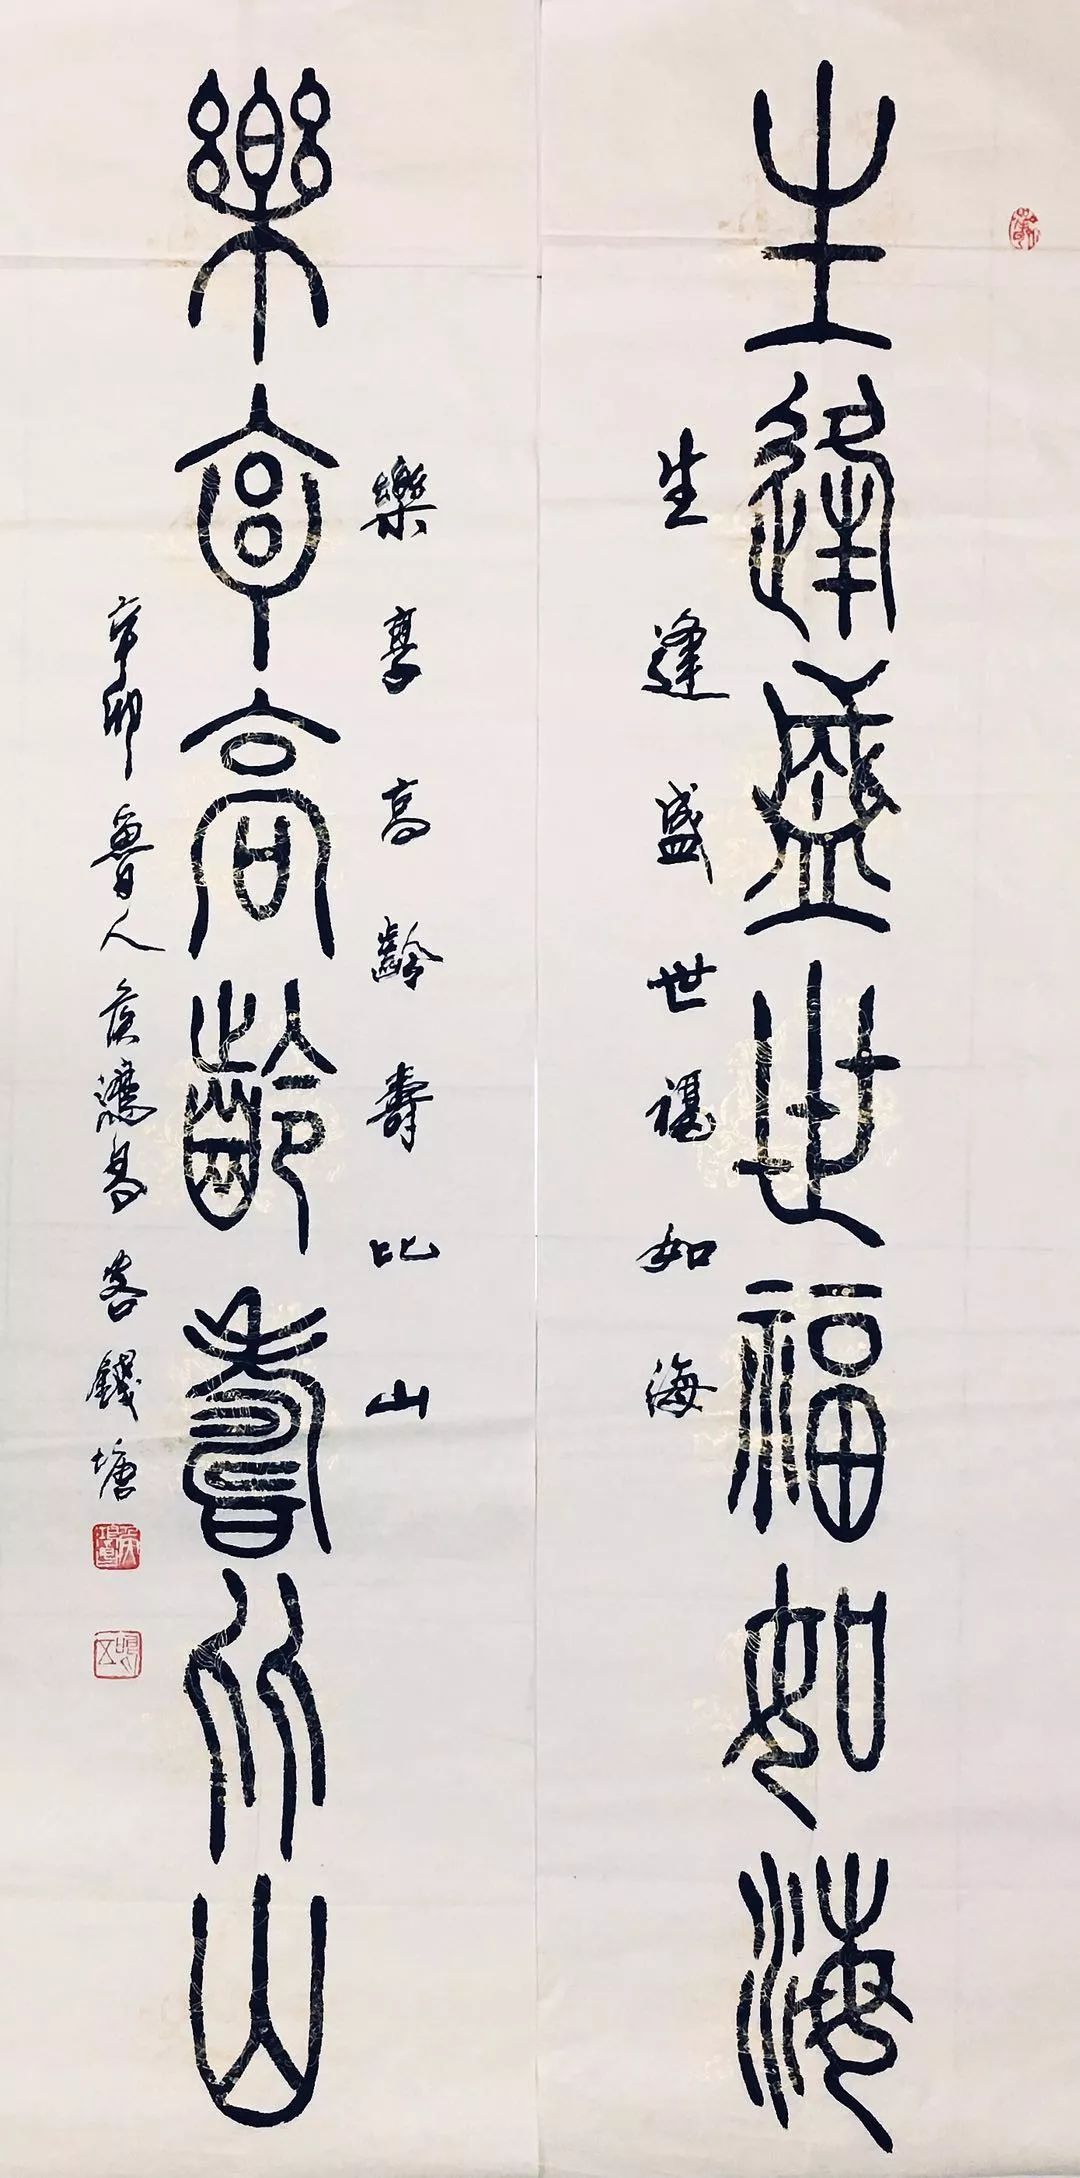 生逢盛世福如海
生逢盛世福如海
樂享高齡壽比山
樂享高齡壽比山
辛卯魯人侯鴻昌客錢塘